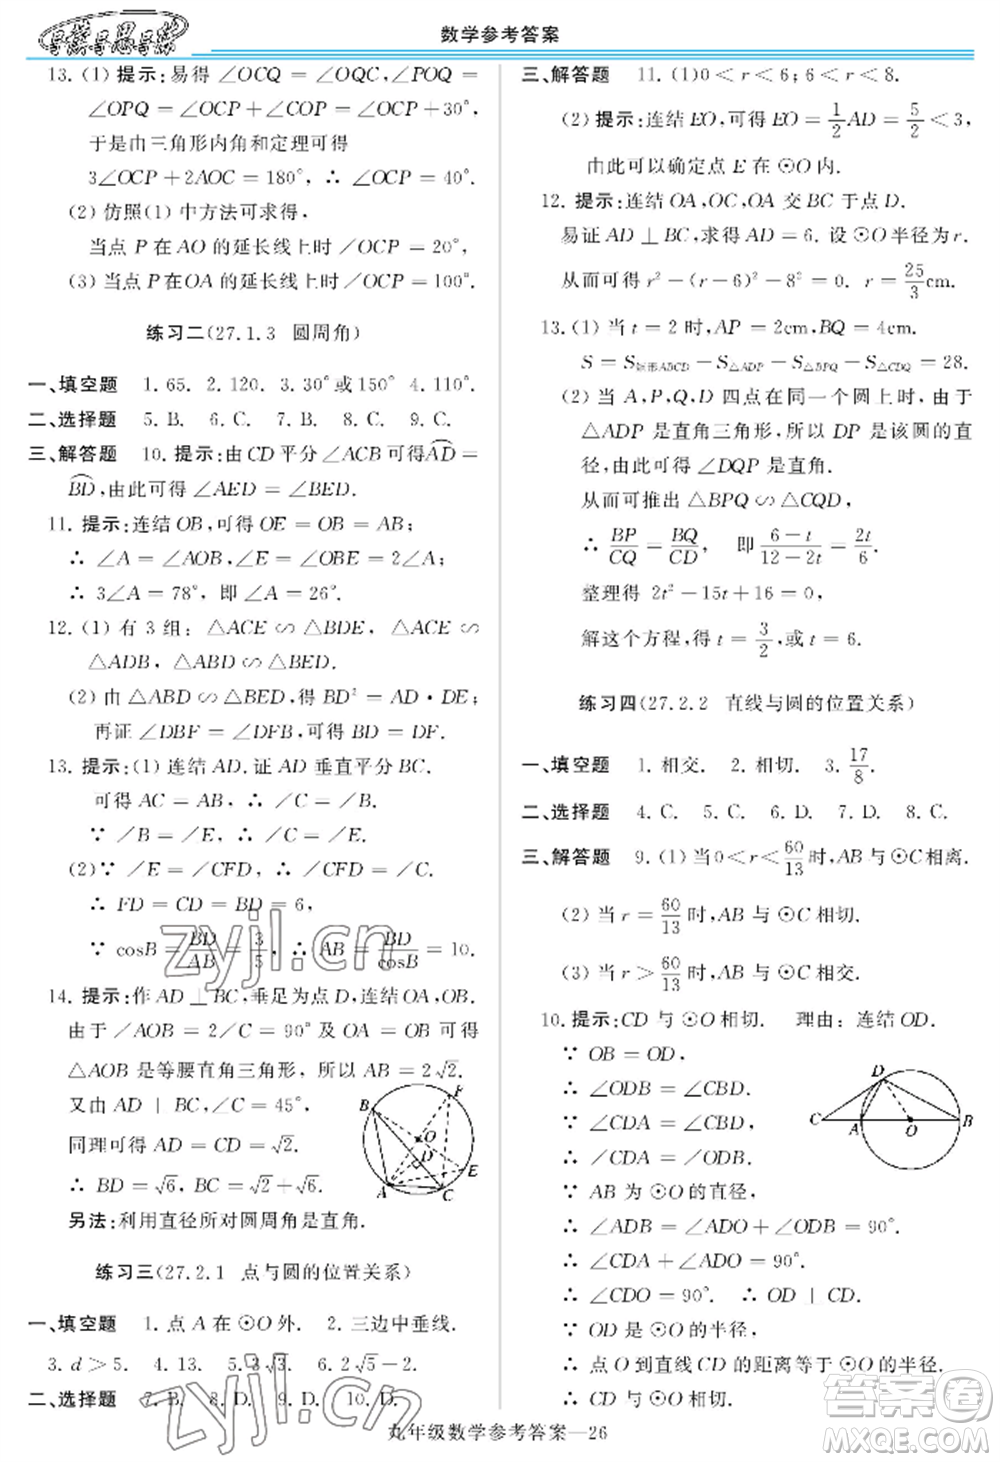 导学导思导练
数学参考答案
13. (1) 提示:易得 ∠OCQ = ∠OQC, ∠POQ =
∠OPQ = ∠OCP + ∠COP = ∠OCP+30°,
于是由三角形内角和定理可得
3∠OCP+2∠AOC = 180°, ∴ ∠OCP = 40°.
(2) 仿照(1) 中方法可求得,
当点 P 在 AO 的延长线上时∠OCP = 20°,
(3) 当点 P 在OA 的延长线上时∠OCP = 100°.
练习二(27.1.3 圆周角)
一、填空题 1. 65. 2. 120. 3. 30°或150° 4. 110°.
二、选择题 5. B. 6. C. 7. B. 8. C. 9. C.
三、解答题 10. 提示:由 CD 平分 ∠ACB 可得 AD⌒ =
BD⌒,由此可得 ∠AED = ∠BED.
11. 提示:连结 OB,可得 OE = OB = AB;
∴ ∠A = ∠AOB,∠E = ∠OBE = 2∠A;
∴ 3∠A = 78°, 即 ∠A = 26°.
12. (1) 有 3 组: △ACE ∽ △BDE, △ACE ∽
△ADB, △ABD ∽ △BED.
(2) 由 △ABD ∽ △BED,得 BD² = AD · DE;
再证 ∠DBF = ∠DFB, 可得 BD = DF.
13. 提示:(1) 连结 AD. 证 AD 垂直平分 BC.
可得 AC = AB, ∴ ∠C = ∠B.
∵ ∠B = ∠E, ∴ ∠C = ∠E.
(2)∵ ∠E = ∠CFD, ∴ ∠C = ∠CFD.
∴ FD = CD = BD = 6,
∵ cosB = BD/AB = 3/5, ∴ AB = BD/cosB = 10.
14. 提示:作 AD ⊥ BC,垂足为点 D,连结 OA,OB.
由于 ∠AOB = 2∠C = 90° 及 OA = OB 可得
△AOB 是等腰直角三角形, 所以 AB = 2√2.
又由 AD ⊥ BC,∠C = 45°.
同理可得 AD = CD = √2.
∴ BD = √6, BC = √2+√6.
另法:利用直径所对圆周角是直角.
B F O D E A C
练习三(27.2.1 点与圆的位置关系)
一、填空题 1. 点 A 在 ⊙O 外. 2. 三边中垂线.
3. d > 5. 4. 13. 5. 3√3. 6. 2√5−2.
二、选择题 7. B. 8. D. 9. D. 10. D.
三、解答题 11. (1)0 < r < 6;6 < r < 8.
(2) 提示:连结 EO,可得 EO = 1/2 AD = 5/2 < 3,
由此可以确定点 E 在 ⊙O 内.
12. 提示:连结 OA,OC,OA 交 BC 于点 D.
易证 AD ⊥ BC,求得 AD = 6. 设 ⊙O 半径为 r.
从而可得 r² − (r − 6)² − 8² = 0. r = 25/3 cm.
13. (1) 当 t = 2 时, AP = 2cm, BQ = 4cm.
S = S矩形ABCD − S△ADP − S△BPQ − S△CDQ = 28.
(2) 当 A,P,Q,D 四点在同一个圆上时,由于
△ADP 是直角三角形,所以 DP 是该圆的直
径,由此可得 ∠DQP 是直角.
从而可推出 △BPQ ∽ △CQD,
∴ BP/CQ = BQ/CD, 即 (6−t)/(12−2t) = t/6.
整理得 2t² − 15t + 16 = 0,
解这个方程,得 t = 3/2,或 t = 6.
练习四(27.2.2 直线与圆的位置关系)
一、填空题 1. 相交. 2. 相切. 3. 17/8.
二、选择题 4. C. 5. C. 6. D. 7. D. 8. C.
三、解答题 9. (1) 当 0 < r < 60/13 时,AB 与 ⊙C 相离.
(2) 当 r = 60/13 时,AB 与 ⊙C 相切.
(3) 当 r > 60/13 时,AB 与 ⊙C 相交.
10. 提示:CD 与 ⊙O 相切. 理由: 连结 OD.
∵ OB = OD,
∴ ∠ODB = ∠CBD.
∵ ∠CDA = ∠CBD,
∴ ∠CDA = ∠ODB.
∵ AB 为 ⊙O 的直径,
∴ ∠ADB = ∠ADO + ∠ODB = 90°.
∴ ∠CDA + ∠ADO = 90°.
∴ ∠CDO = 90°.
∴ OD ⊥ CD.
∵ OD 是 ⊙O 的半径,
∴ 点 O 到直线 CD 的距离等于 ⊙O 的半径.
∴ CD 与 ⊙O 相切.
D C A O B
九年级数学参考答案—26
zyjl.cn
zyjl.cn
答案圈
MXQE.COM